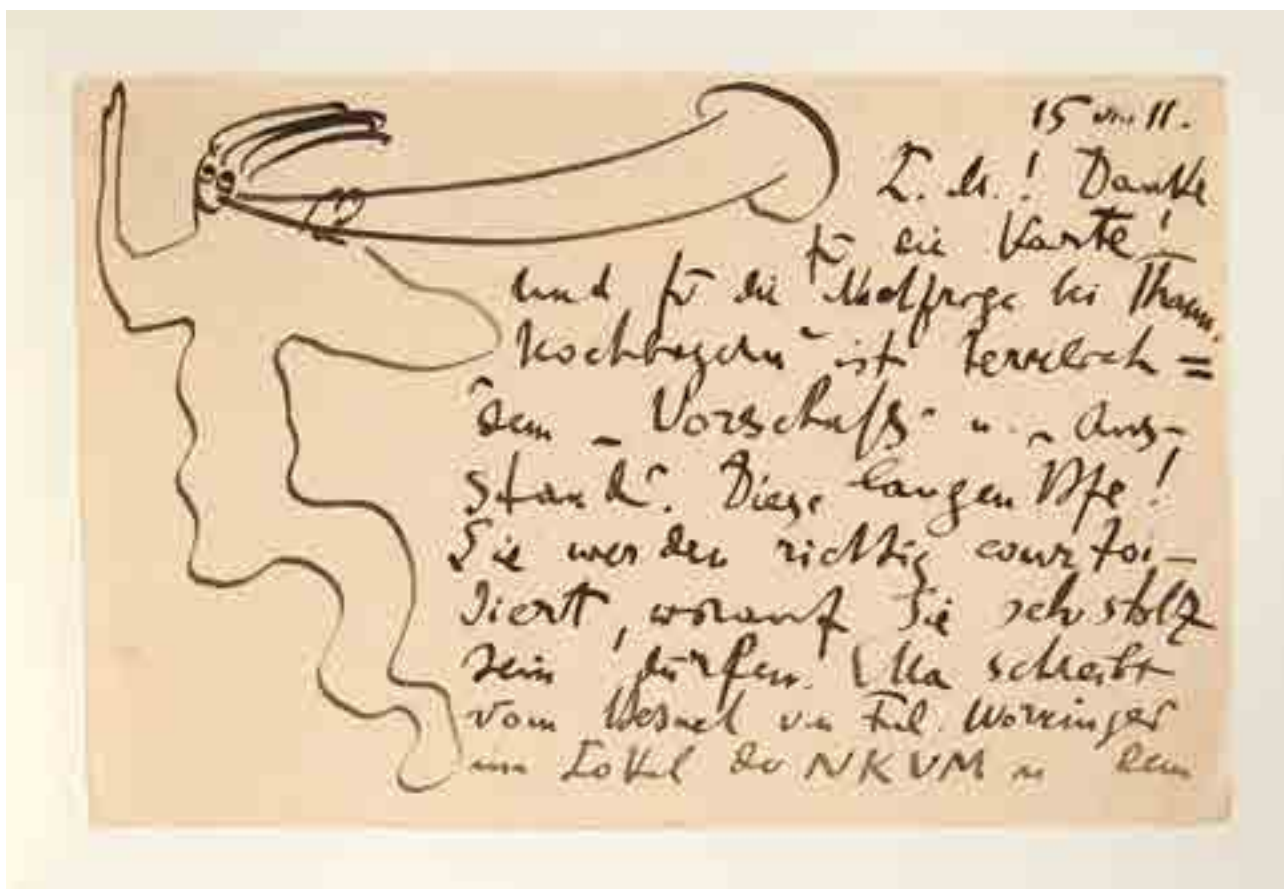 15 VIII 11.
L. M.! Danke
für die Karte!
und für die Nachfrage bei Thann.
"Kochbayern" ist
dem "Vorschuss" u. "Aus-
stand". Diese langen
Sie werden richtig courtoi-
siert, worauf Sie sehr stolz
sein dürfen. Ma schreibt
vom Besuch von Frl. Worringer
im Lokal der NKVM u dem